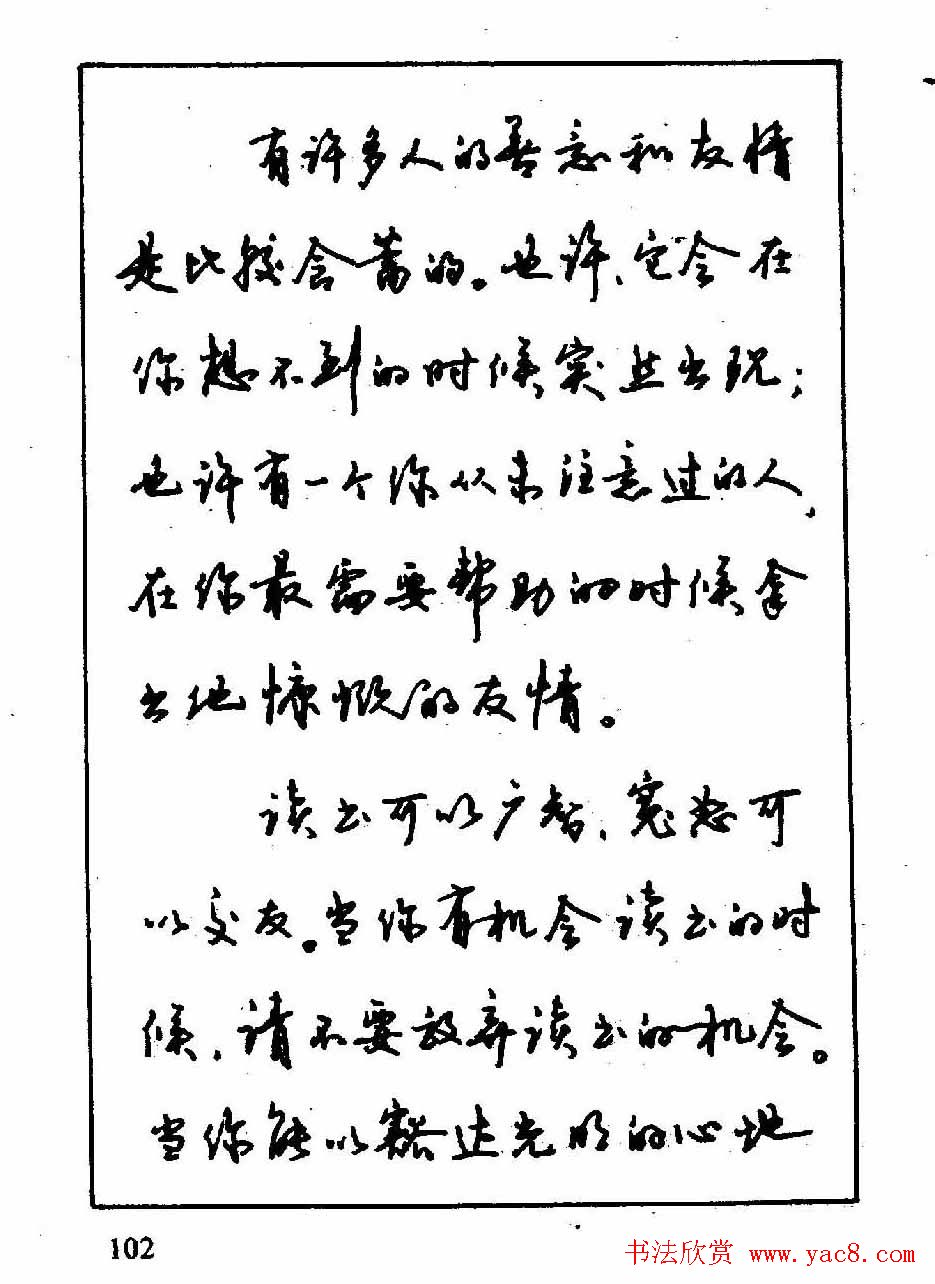 有许多人的善意和友情
是比较含蓄的。也许,它会在
你想不到的时候突然出现;
也许有一个你从未注意过的人,
在你最需要帮助的时候拿
出他慷慨的友情。
读书可以广智,宽恕可
以交友。当你有机会读书的时
候,请不要放弃读书的机会。
当你能以豁达光明的心地
102
书法欣赏 www.yac8.com